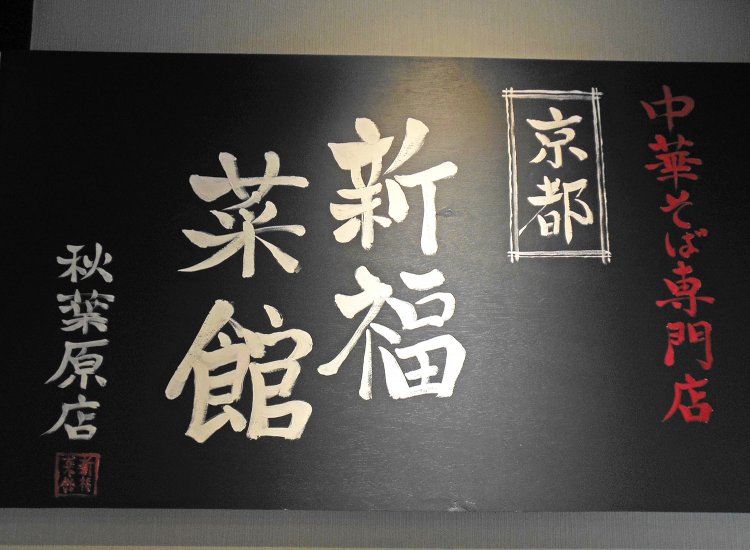 中華そば専門店
京都
新福
菜館
秋葉原店
新福
菜館